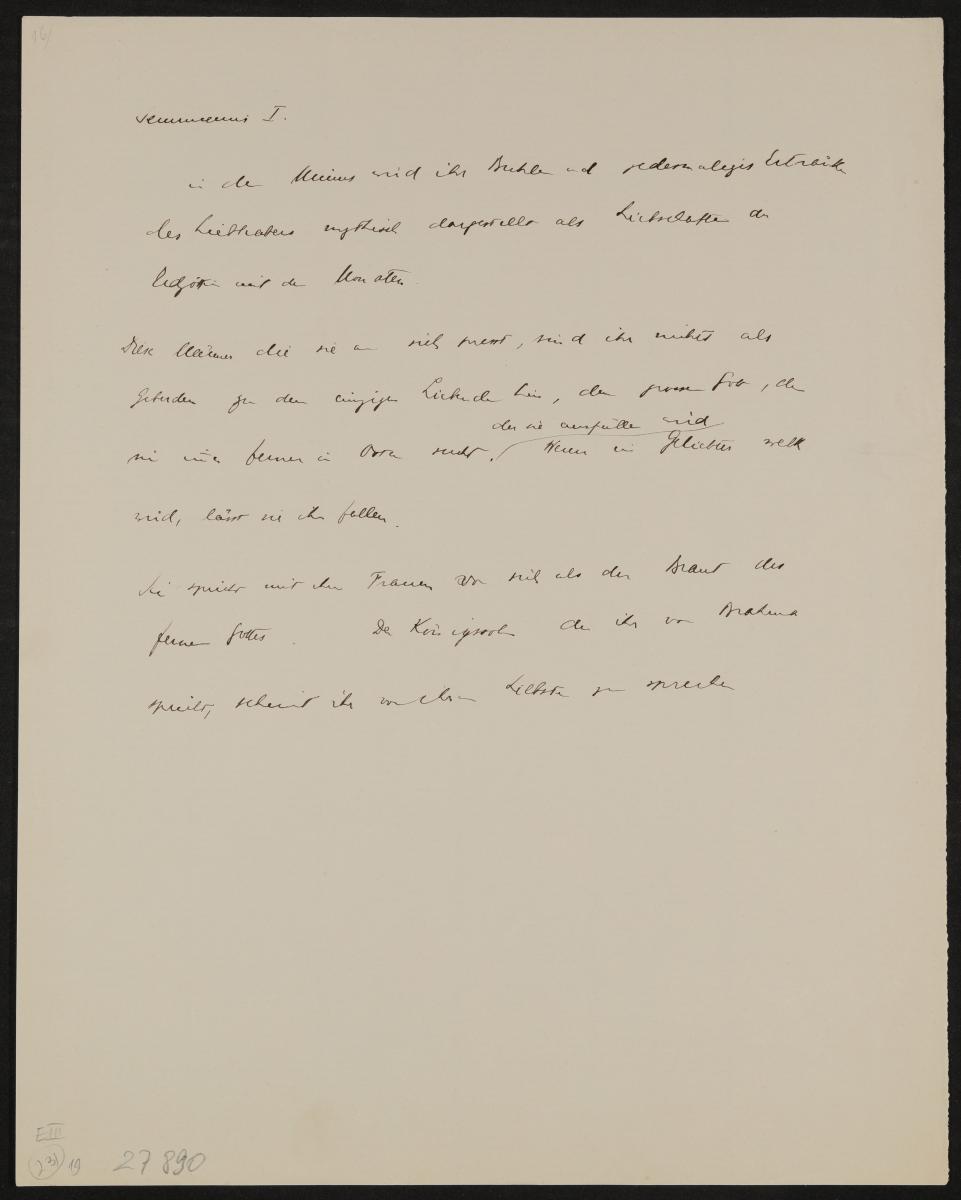 16/
Semiramis I.
in der Mimus wird ihr Buhlen und jedesmaliges Ertränken
des Liebhabers mythisch dargestellt als Liebschaften der
Erdgöttin mit den Monaten.
Diese Männer die sie an sich presst, sind ihr nichts als
Geberden zu dem einzigen Liebenden hin, dem grossen Gott, den
sie immer ferner im Osten sucht. der sie ausfüllen wird Wenn ein Geliebter welk
wird, lässt sie ihn fallen.
Sie spricht mit ihren Frauen von sich als der Braut des
fernen Gottes. Der Königssohn der ihr von Brahma
spricht, scheint ihr von ihrem Liebsten zu sprechen
E III
19
27890